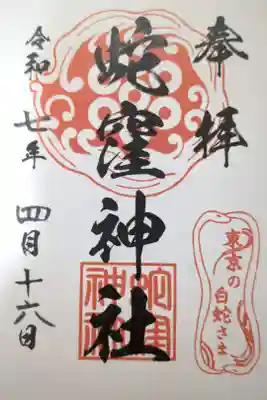 奉拝
蛇窪神社
令和七年 四月十六日
東京の
白蛇さま
蛇窪
神社